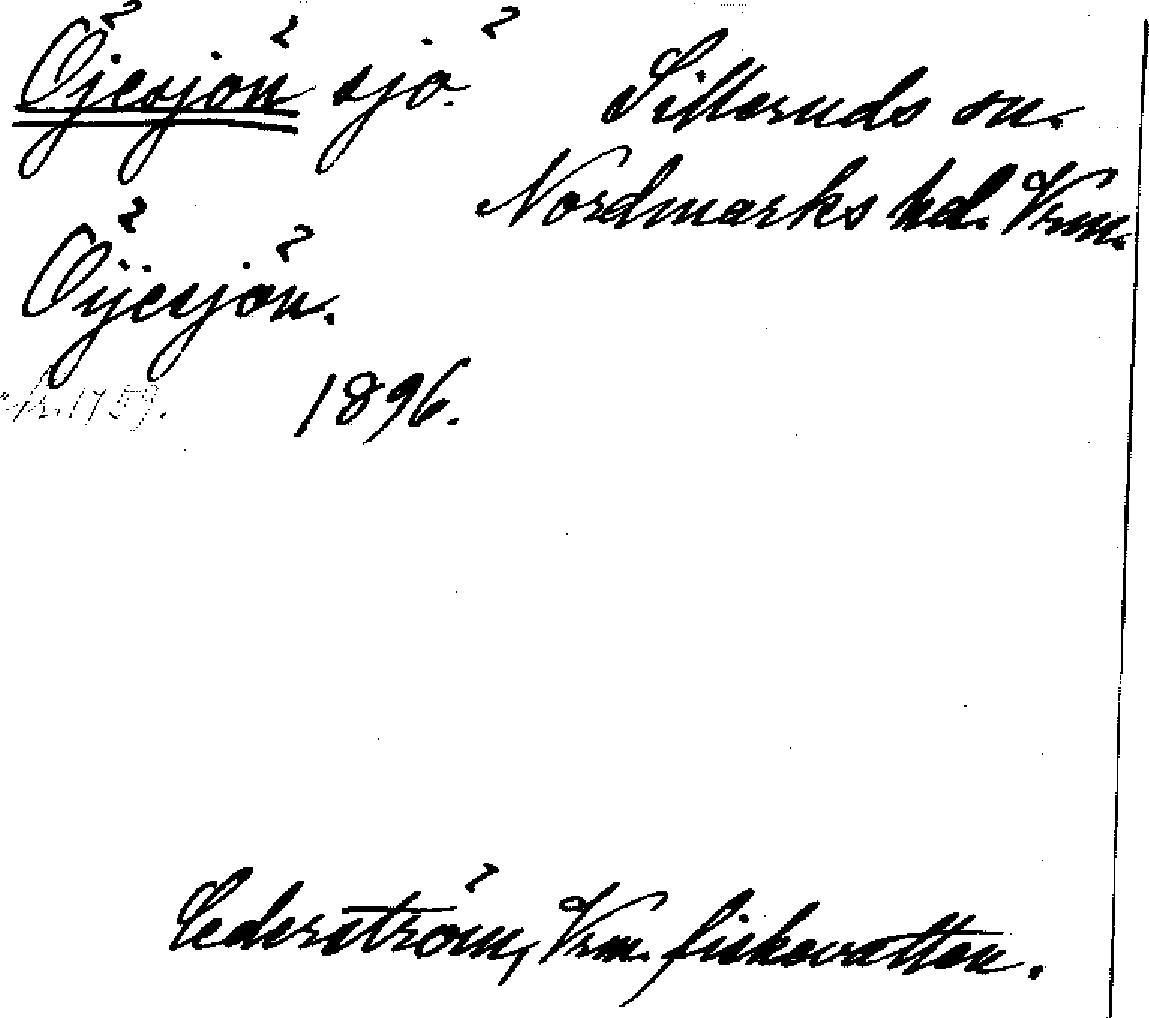 Öjesjön sjö.
Silleruds sn.
Nordmarks hd. Vrm.
Öijesjön.
1896.
Cederström, Vrm. fiskevatten.